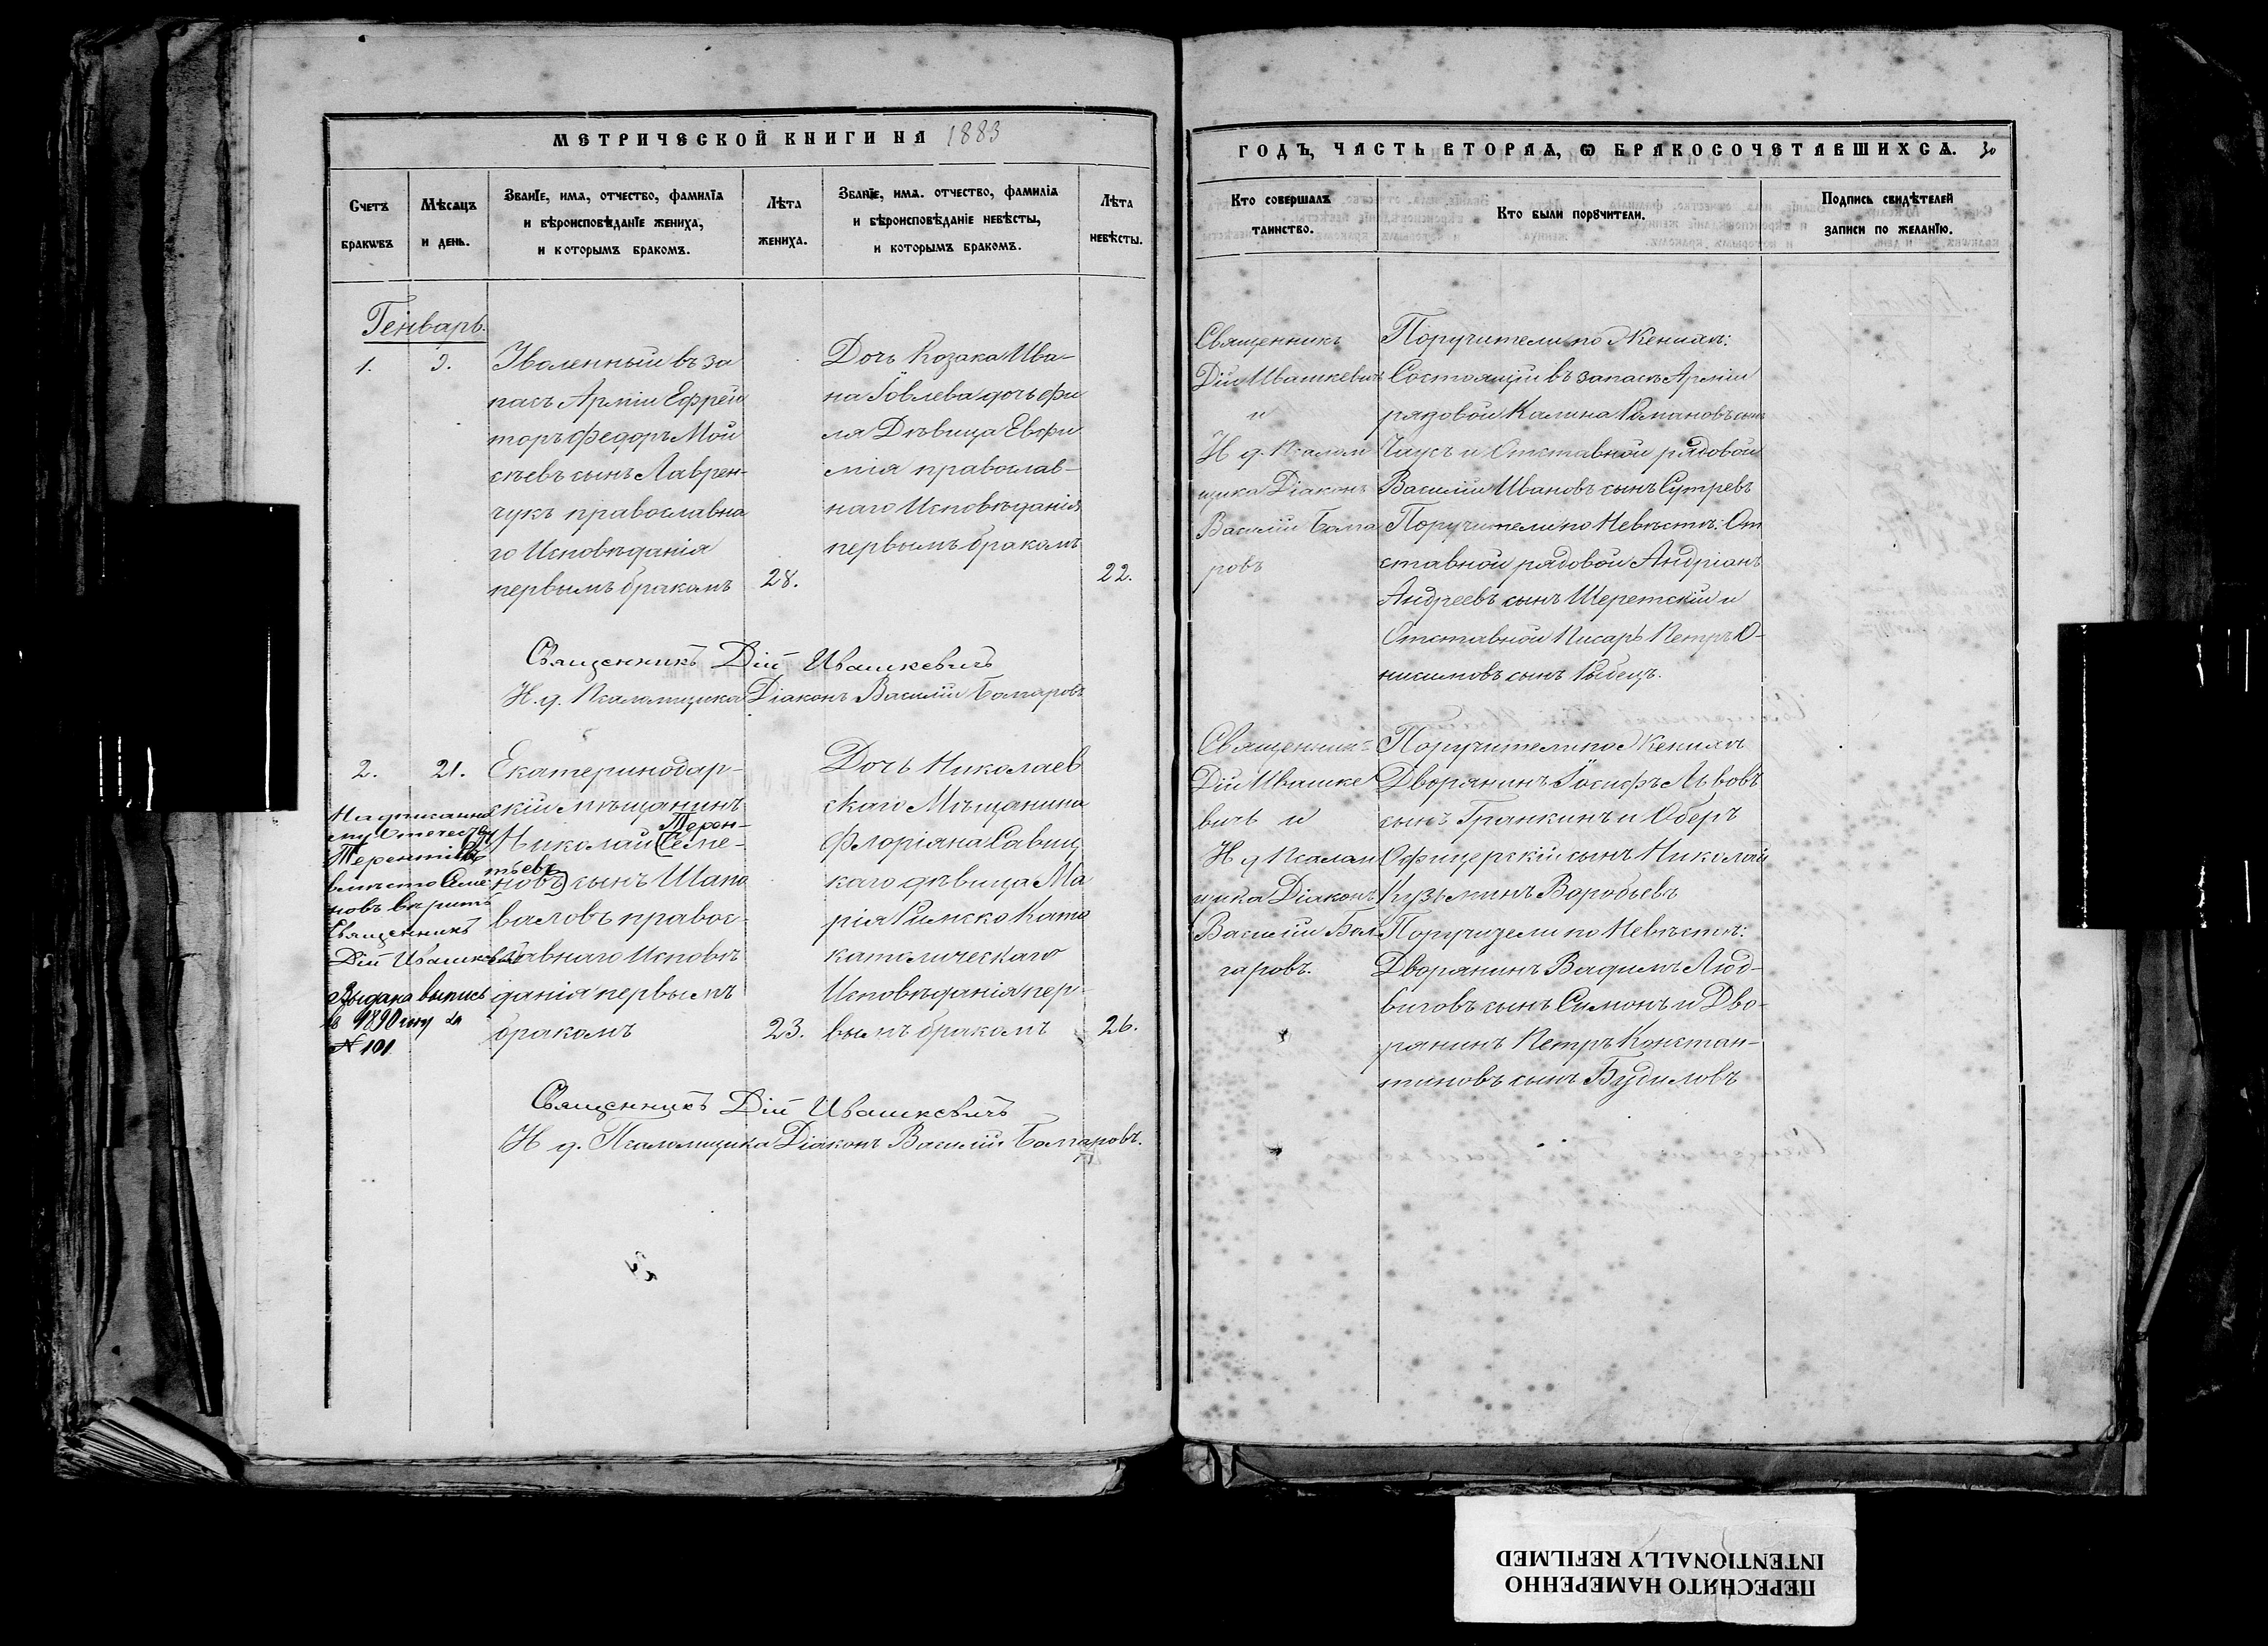 МЕТРИЧЕСКОЙ КНИГИ НА 1883
Счетъ браковъ
Мѣсяцъ и день.
Званіе, имя, отчество, фамилія
и вѣроисповѣданіе жениха,
и которымъ бракомъ.
Лѣта
жениха.
Званіе, имя, отчество, фамилія
и вѣроисповѣданіе невѣсты,
и которымъ бракомъ.
Лѣта
невѣсты.
Генварь.
1.
9.
Уволенный въ за
пасъ Арміи Ефрей
торъ Федоръ Мои
сѣевъ сынъ Лаврен-
чукъ православна
го Исповѣданія
первымъ бракомъ
28.
Дочь Козака Ива-
на Іовлева дочь
Дѣвица Евфи
мія православ-
наго Исповѣданія
первымъ бракомъ
22.
Священникъ Дій Ивашкевичъ
И. д. Псаломщика Діаконъ Василій Болгаровъ
2.
21.
Екатеринодар-
скій мѣщанинъ
Терен-
Николай (Семе-
тьевъ
новъ) сынъ Шапо
валовъ правос-
лавнаго Исповѣ
данія первымъ
бракомъ
23.
Дочь Николаев
скаго Мѣщанина
Флоріяна Савиц
каго дѣвица Ма
рія Римско Като
католическаго
Исповѣданія пер-
вымъ бракомъ
26.
Надписанно
му отчеству
вмѣсто Семе
новъ вѣрить
Священникъ
Дій Ивашкевичъ
Выдана выпись
в 1890 году за
№ 101
Священникъ Дій Ивашкевичъ
И д. Псаломщика Діаконъ Василій Болгаровъ.
ГОДЪ, ЧАСТЬ ВТОРАЯ, Ѡ БРАКОСОЧЕТАВШИХСЯ. 30
Кто совершалъ
таинство.
Кто были поручители.
Подпись свидѣтелей
записи по желанію.
Священникъ
Дій Ивашкевичъ
и
И д. Псалом
щика Діаконъ
Василій Болга
ровъ
Поручители по Жениху:
Состоящій въ запасѣ Арміи
рядовой Калина Романовъ сынъ
и Отставной рядовой
Василій Ивановъ сынъ
Поручители по Невѣстѣ: От
ставной рядовой Андріанъ
Андреевъ сынъ Шеретскій и
Отставной Писарь Петръ О-
нисимовъ сынъ Рыбецъ.
Священникъ
Дій Ивашке
вичъ и
И д Псалом
щика Діаконъ
Василій Бол
гаровъ.
Поручители по Жениху
Дворянинъ Іосифъ Львовъ
сынъ Гранкинъ и Оберъ
Офицерскій сынъ Николай
Кузьминъ Воробьевъ
Поручители по Невѣстѣ:
Дворянинъ Вадимъ Люд-
виговъ сынъ Симонъ и Дво-
рянинъ Петръ Констан-
тиновъ сынъ Будиловъ
ПЕРЕСНЯТО НАМЕРЕННО
INTENTIONALLY REFILMED